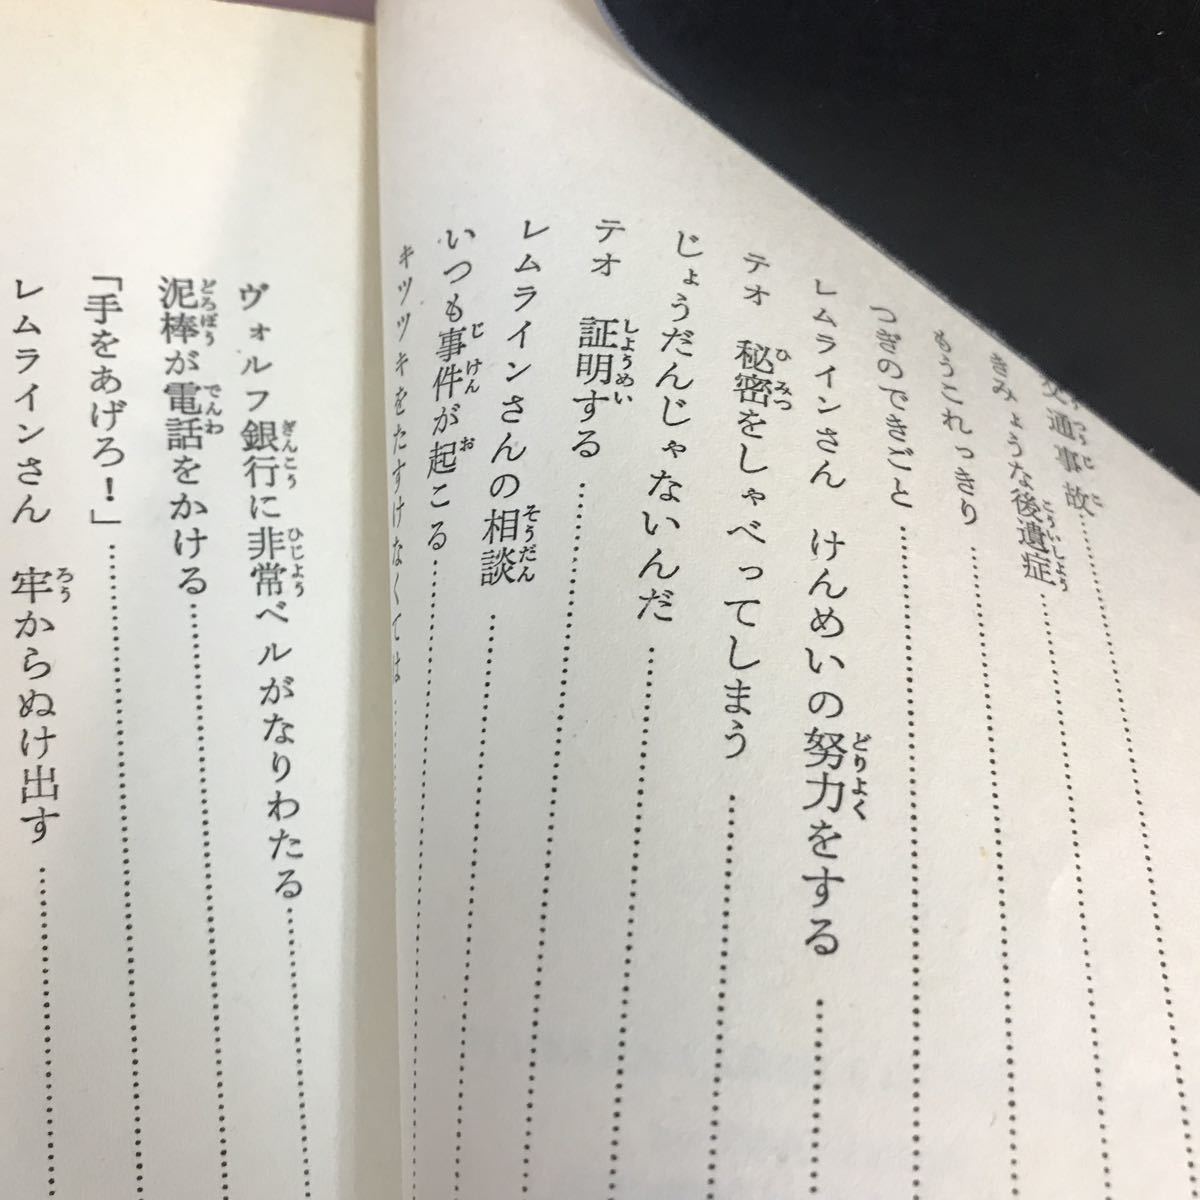 交通事故……
きみょうな後遺症……
もうこれっきり……
つぎのできごと……
レムラインさん けんめいの努力をする……
テオ 秘密をしゃべってしまう……
じょうだんじゃないんだ……
テオ 証明する……
レムラインさんの相談……
いつも事件が起こる……
キツツキをたすけなくては……
ヴォルフ銀行に非常ベルがなりわたる……
泥棒が電話をかける……
「手をあげろ！」……
レムラインさん 牢からぬけ出す……